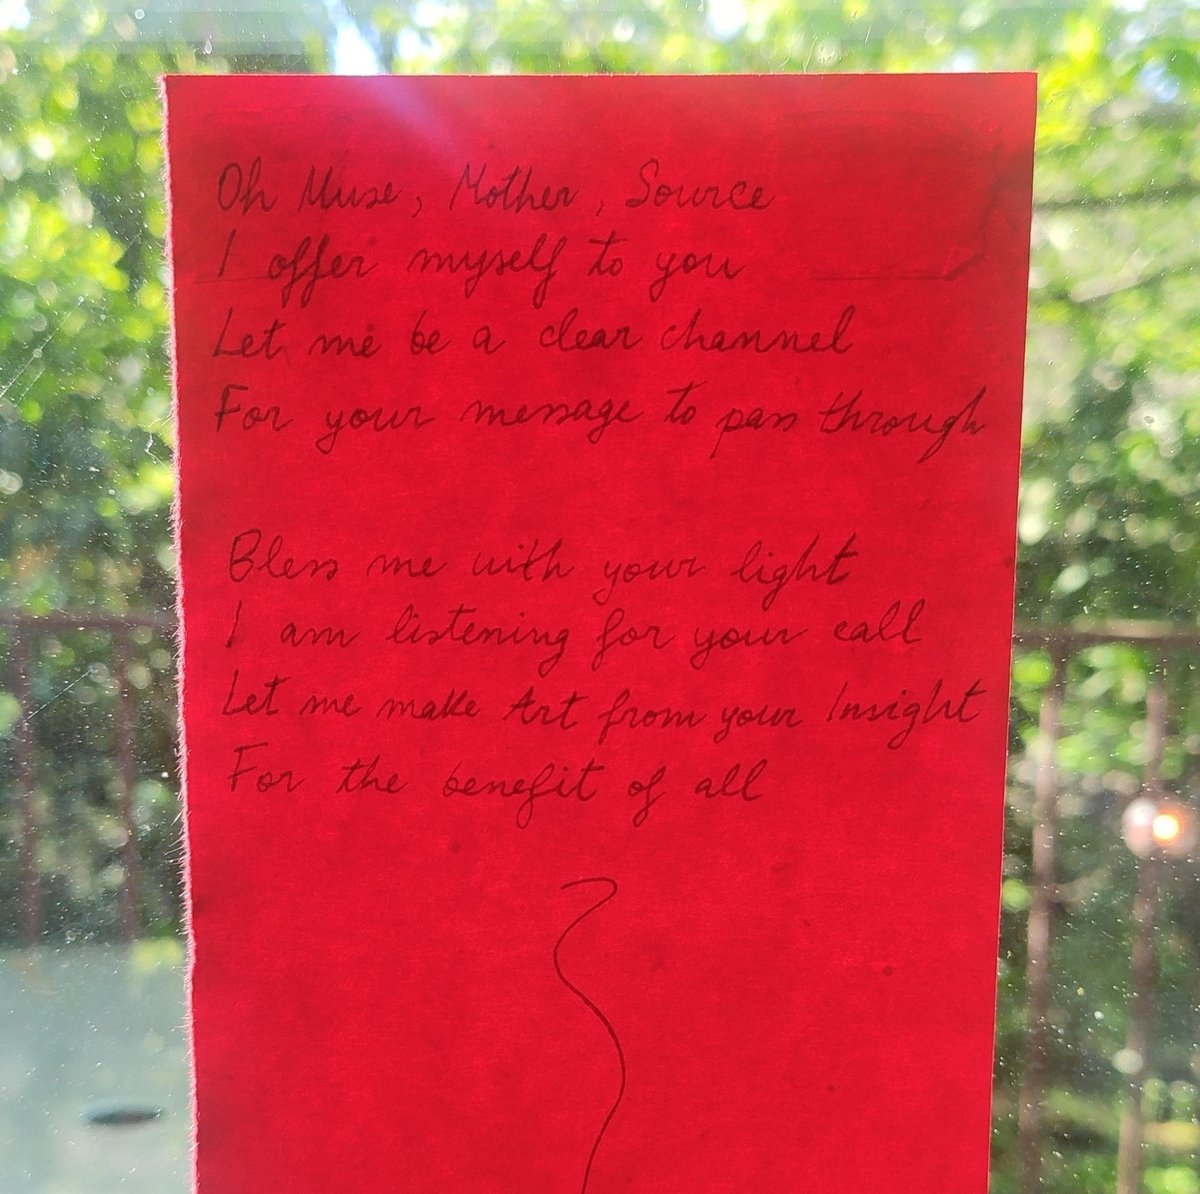 Oh Muse, Mother, Source
I offer myself to you
Let me be a clear channel
For your message to pass through
Bless me with your light
I am listening for your call
Let me make Art from your Insight
For the benefit of all